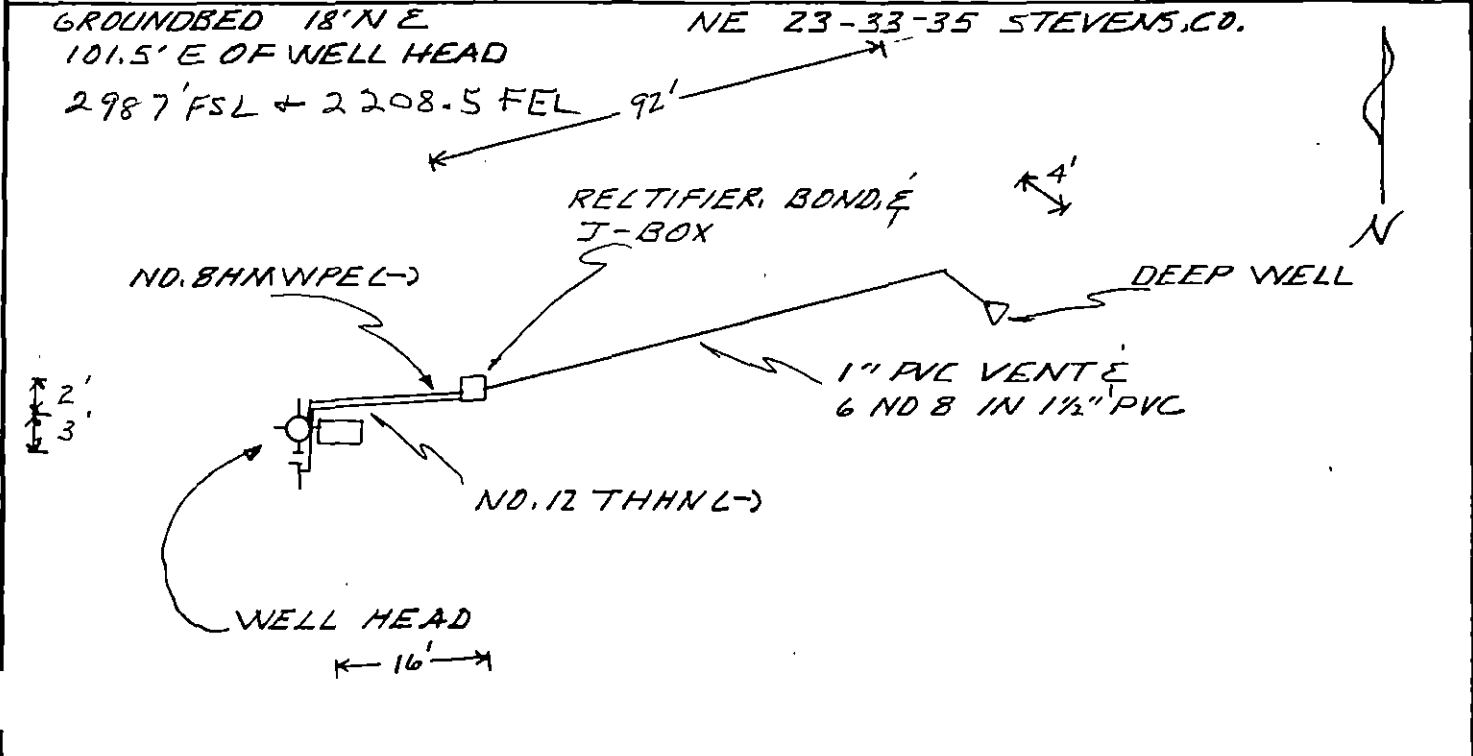 GROUNDBED 18' N &
101.5' E OF WELL HEAD
2987' FSL & 2208.5 FEL
NE 23-33-35 STEVENS, CO.
92'
4'
RECTIFIER, BOND, &
J-BOX
NO. 8 HMWPE (-)
DEEP WELL
1" PVC VENT &
6 NO 8 IN 1½" PVC
2'
3'
NO. 12 THHN (-)
WELL HEAD
16'
N